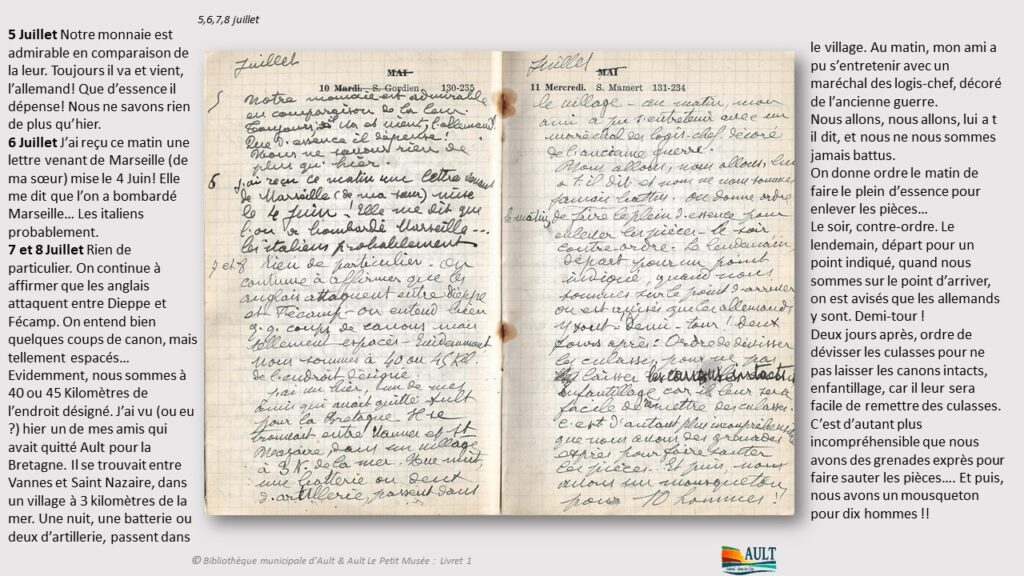 5,6,7,8 juillet
5 Juillet Notre monnaie est
admirable en comparaison de
la leur. Toujours il va et vient,
l'allemand! Que d'essence il
dépense! Nous ne savons rien
de plus qu'hier.
6 Juillet J'ai reçu ce matin une
lettre venant de Marseille (de
ma sœur) mise le 4 Juin! Elle
me dit que l'on a bombardé
Marseille… Les italiens
probablement.
7 et 8 Juillet Rien de
particulier. On continue à
affirmer que les anglais
attaquent entre Dieppe et
Fécamp. On entend bien
quelques coups de canon, mais
tellement espacés…
Evidemment, nous sommes à
40 ou 45 Kilomètres de
l'endroit désigné. J'ai vu (ou eu
?) hier un de mes amis qui
avait quitté Ault pour la
Bretagne. Il se trouvait entre
Vannes et Saint Nazaire, dans
un village à 3 kilomètres de la
mer. Une nuit, une batterie ou
deux d'artillerie, passent dans
Juillet
MAI
10 Mardi. S. Gordien 130-235
5 Notre monnaie est admirable
en comparaison de la leur.
Toujours il va et vient, l'allemand!
Que d'essence il dépense!
Nous ne savons rien de
plus qu'hier.
6 J'ai reçu ce matin une lettre venant
de Marseille (de ma sœur) mise
le 4 Juin! Elle me dit que
l'on a bombardé Marseille...
les italiens probablement
7 et 8 Rien de particulier. On
continue à affirmer que les
anglais attaquent entre Dieppe
et Fécamp - on entend bien
q.q. coups de canons mais
tellement espacés - Evidemment
nous sommes à 40 ou 45 Kil.
de l'endroit désigné.
hier, un de mes
amis qui avait quitté Ault
pour la Bretagne. Il se
trouvait entre Vannes et St
Nazaire dans un village
à 3 K. de la mer. Une nuit
une batterie ou deux
d'artillerie, passent dans
Juillet
MAI
11 Mercredi. S. Mamert 131-234
le village - au matin, mon
ami a pu s'entretenir avec un
maréchal des logis-chef décoré
de l'ancienne guerre.
Nous allons, nous allons, lui
a t'il dit et nous ne nous sommes
jamais battus. On donne ordre
le matin de faire le plein d'essence pour
enlever les pièces - le soir
contre-ordre. Le lendemain
départ pour un point
indiqué, quand nous
sommes sur le point d'arriver
on est avisés que les allemands
y sont - Demi-tour! Deux
jours après: Ordre de dévisser
les culasses, pour ne pas
laisser les canons intacts
enfantillage car il leur sera
facile de remettre des culasses.
C'est d'autant plus incompréhensible
que nous avons des grenades
exprès pour faire sauter
les pièces. Et puis, nous
avons un mousqueton
pour 10 hommes!!
le village. Au matin, mon ami a
pu s'entretenir avec un
maréchal des logis-chef, décoré
de l'ancienne guerre.
Nous allons, nous allons, lui a t
il dit, et nous ne nous sommes
jamais battus.
On donne ordre le matin de
faire le plein d'essence pour
enlever les pièces…
Le soir, contre-ordre. Le
lendemain, départ pour un
point indiqué, quand nous
sommes sur le point d'arriver,
on est avisés que les allemands
y sont. Demi-tour !
Deux jours après, ordre de
dévisser les culasses pour ne
pas laisser les canons intacts,
enfantillage, car il leur sera
facile de remettre des culasses.
C'est d'autant plus
incompréhensible que nous
avons des grenades exprès pour
faire sauter les pièces…. Et puis,
nous avons un mousqueton
pour dix hommes !!
© Bibliothèque municipale d'Ault & Ault Le Petit Musée : Livret 1
AULT